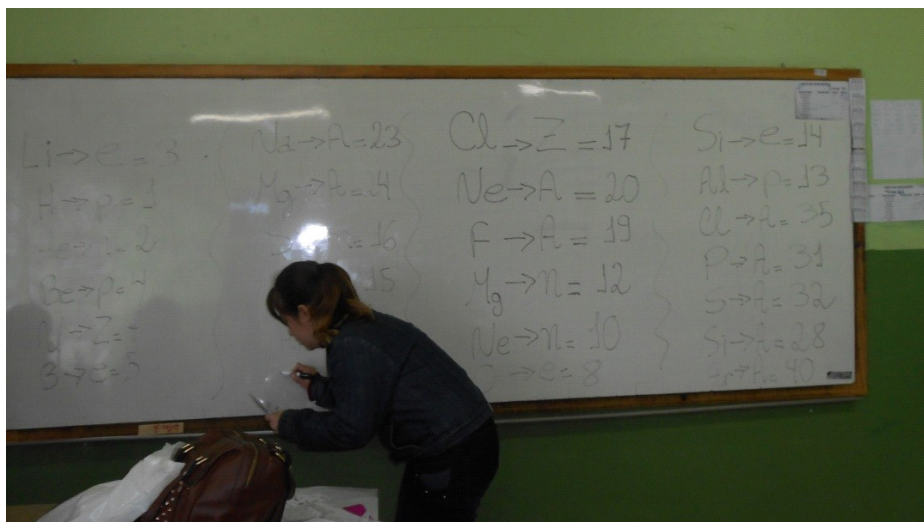 Li→e=3
H→p=1
=2
Be→p=4
Z=
B→e=5
Na→A=23
Mg→A=24
=16
15
Cl→Z=17
Ne→A=20
F→A=19
Mg→n=12
Ne→n=10
→e=8
Si→e=14
Al→p=13
Cl→A=35
P→A=31
S→A=32
Si→A=28
→A=40